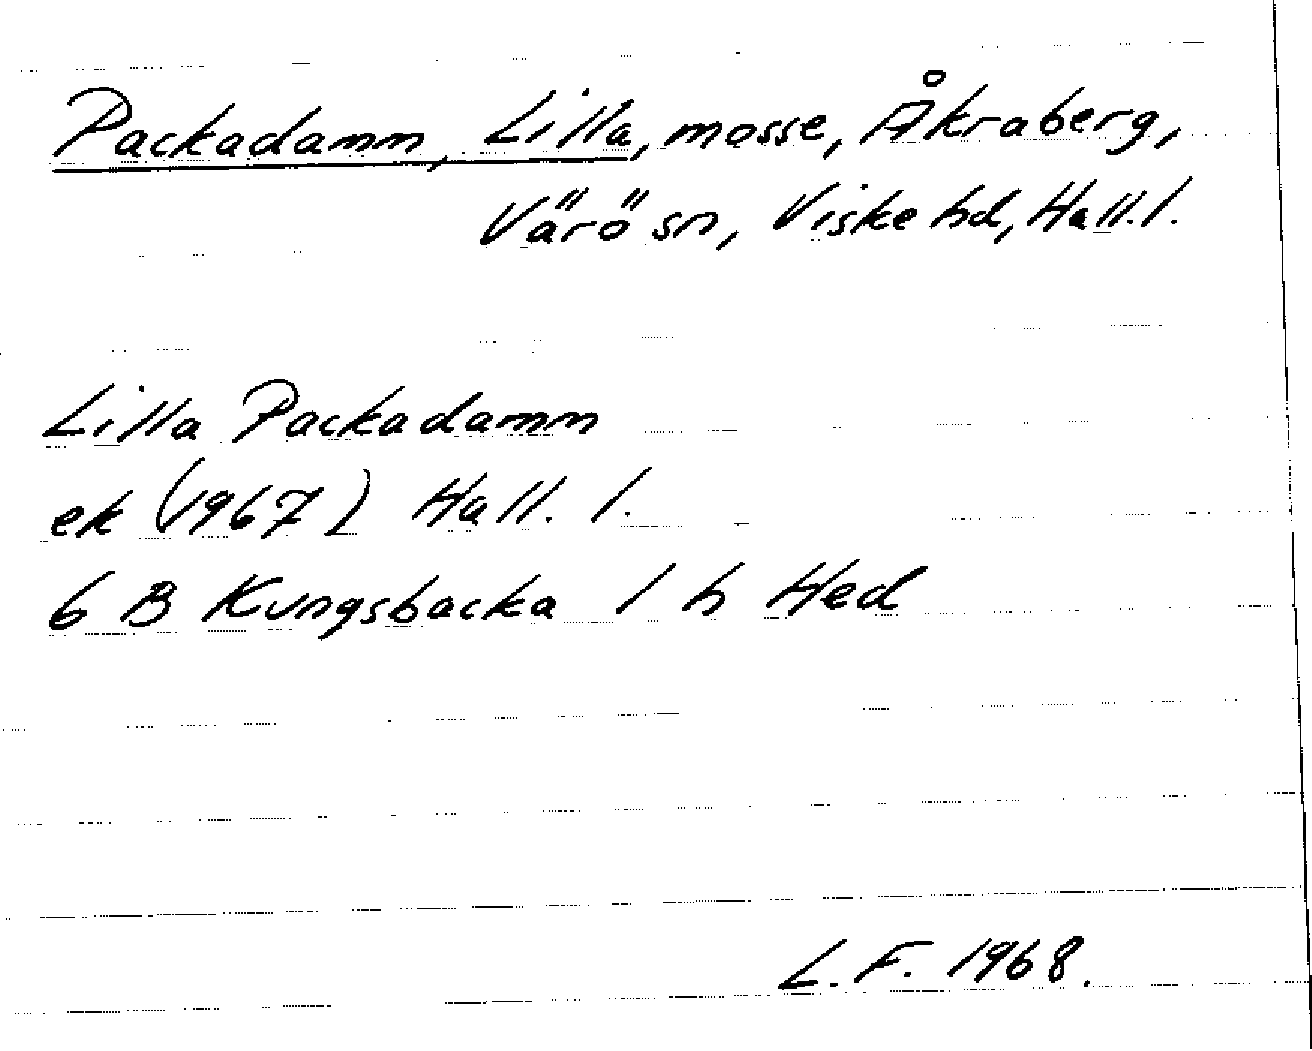 Packadamm, Lilla, mosse, Åkraberg,
Värö sn, Viske hd, Hall. l.
Lilla Packadamm
ek (1967) Hall. l.
6 B Kungsbacka 1 h Hed
L. F. 1968.